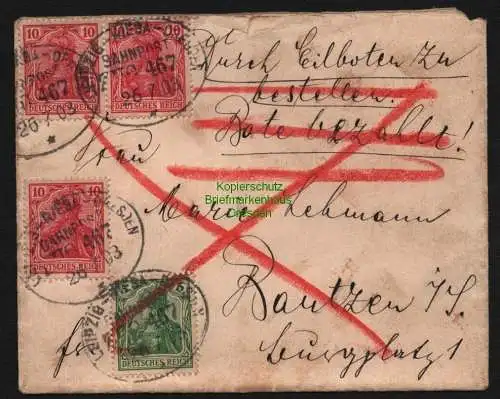 10 10
DEUTSCHES REICH DEUTSCHES REICH
BAHNPOST
467 467
26.7.03 26.7.03
Durch Eilboten zu
bestellen.
Bote bezahlt!
Frau
Kopierschutz
Briefmarkenhaus
Dresden
Marie Lehmann
10 10
DEUTSCHES REICH
BAHNPOST
467
Bautzen i/S.
fr.
LEIPZIG
DEUTSCHES REICH
Burgplatz 1